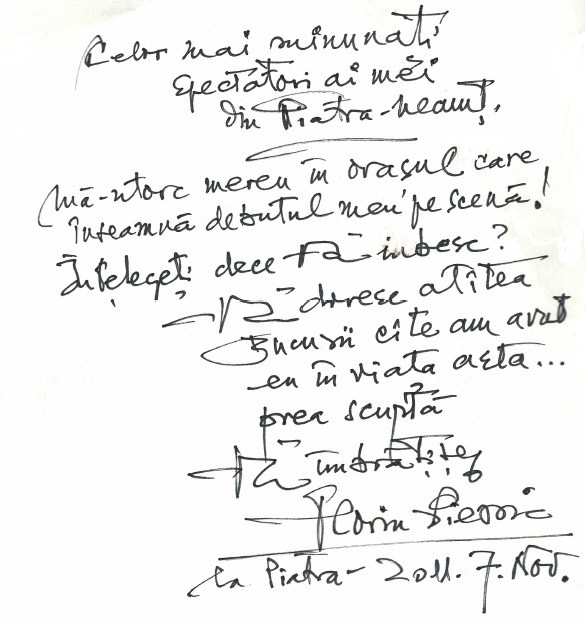 Celor mai minunați
spectători ai mei
din Piatra-Neamț.
Mă-ntorc mereu în orașul care
înseamnă debutul meu pe scenă!
Înțelegeți dece Vă iubesc?
Vă doresc atîtea
Bucurii cîte am avut
eu în viata asta...
prea scurtă
Vă îmbrățișez
Florin Piersic
la Piatra- 2011. 7. Nov.